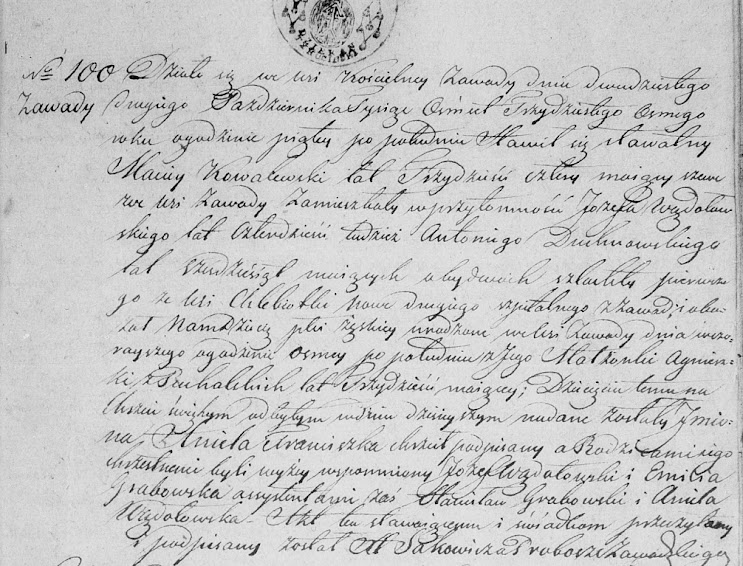 № 100 Działo się we wsi Kościelney Zawady dnia dwudziestego
Zawady drugiego Października Tysiąc Osmset Trzydziestego Osmego
roku o godzinie piątey po południu Stawił się sławatny
Maciey Kowalewski lat Trzydzieści cztery maiący szewc
we wsi Zawady Zamieszkały w przytomności Józefa Wądołow
skiego lat Czterdzieści tudzież Antoniego Duchnowskiego
lat sześćdziesiąt maiących obydwoch szlachty pierwsze
go ze wsi Chlebiotki nowe drugiego szpitalnego z Zawad; i oka
zał Nam Dziecię płci żęskiey urodzone we wsi Zawady dnia wczo-
rayszego o godzinie Osmey po południu z Jego Małżonki Agniesz-
ki z Puchalskich lat Trzydzieści maiącey; Dziecięciu temu na
chrzcie świętym odbytym w dniu dzisieyszym nadane zostały Jmio-
na, Aniela Franiszka chrzcił podpisany a Rodzicami iego
chrzestnemi byli wyżey wspomniony Józef Wądołowski i Emilia
Grabowska assystentami zaś Stanisław Grabowski i Aniela
Wądołowska – Akt ten stawaiącym i świadkom przeczytany
i podpisany został X Sakowicz Proboszcz Zawadzki